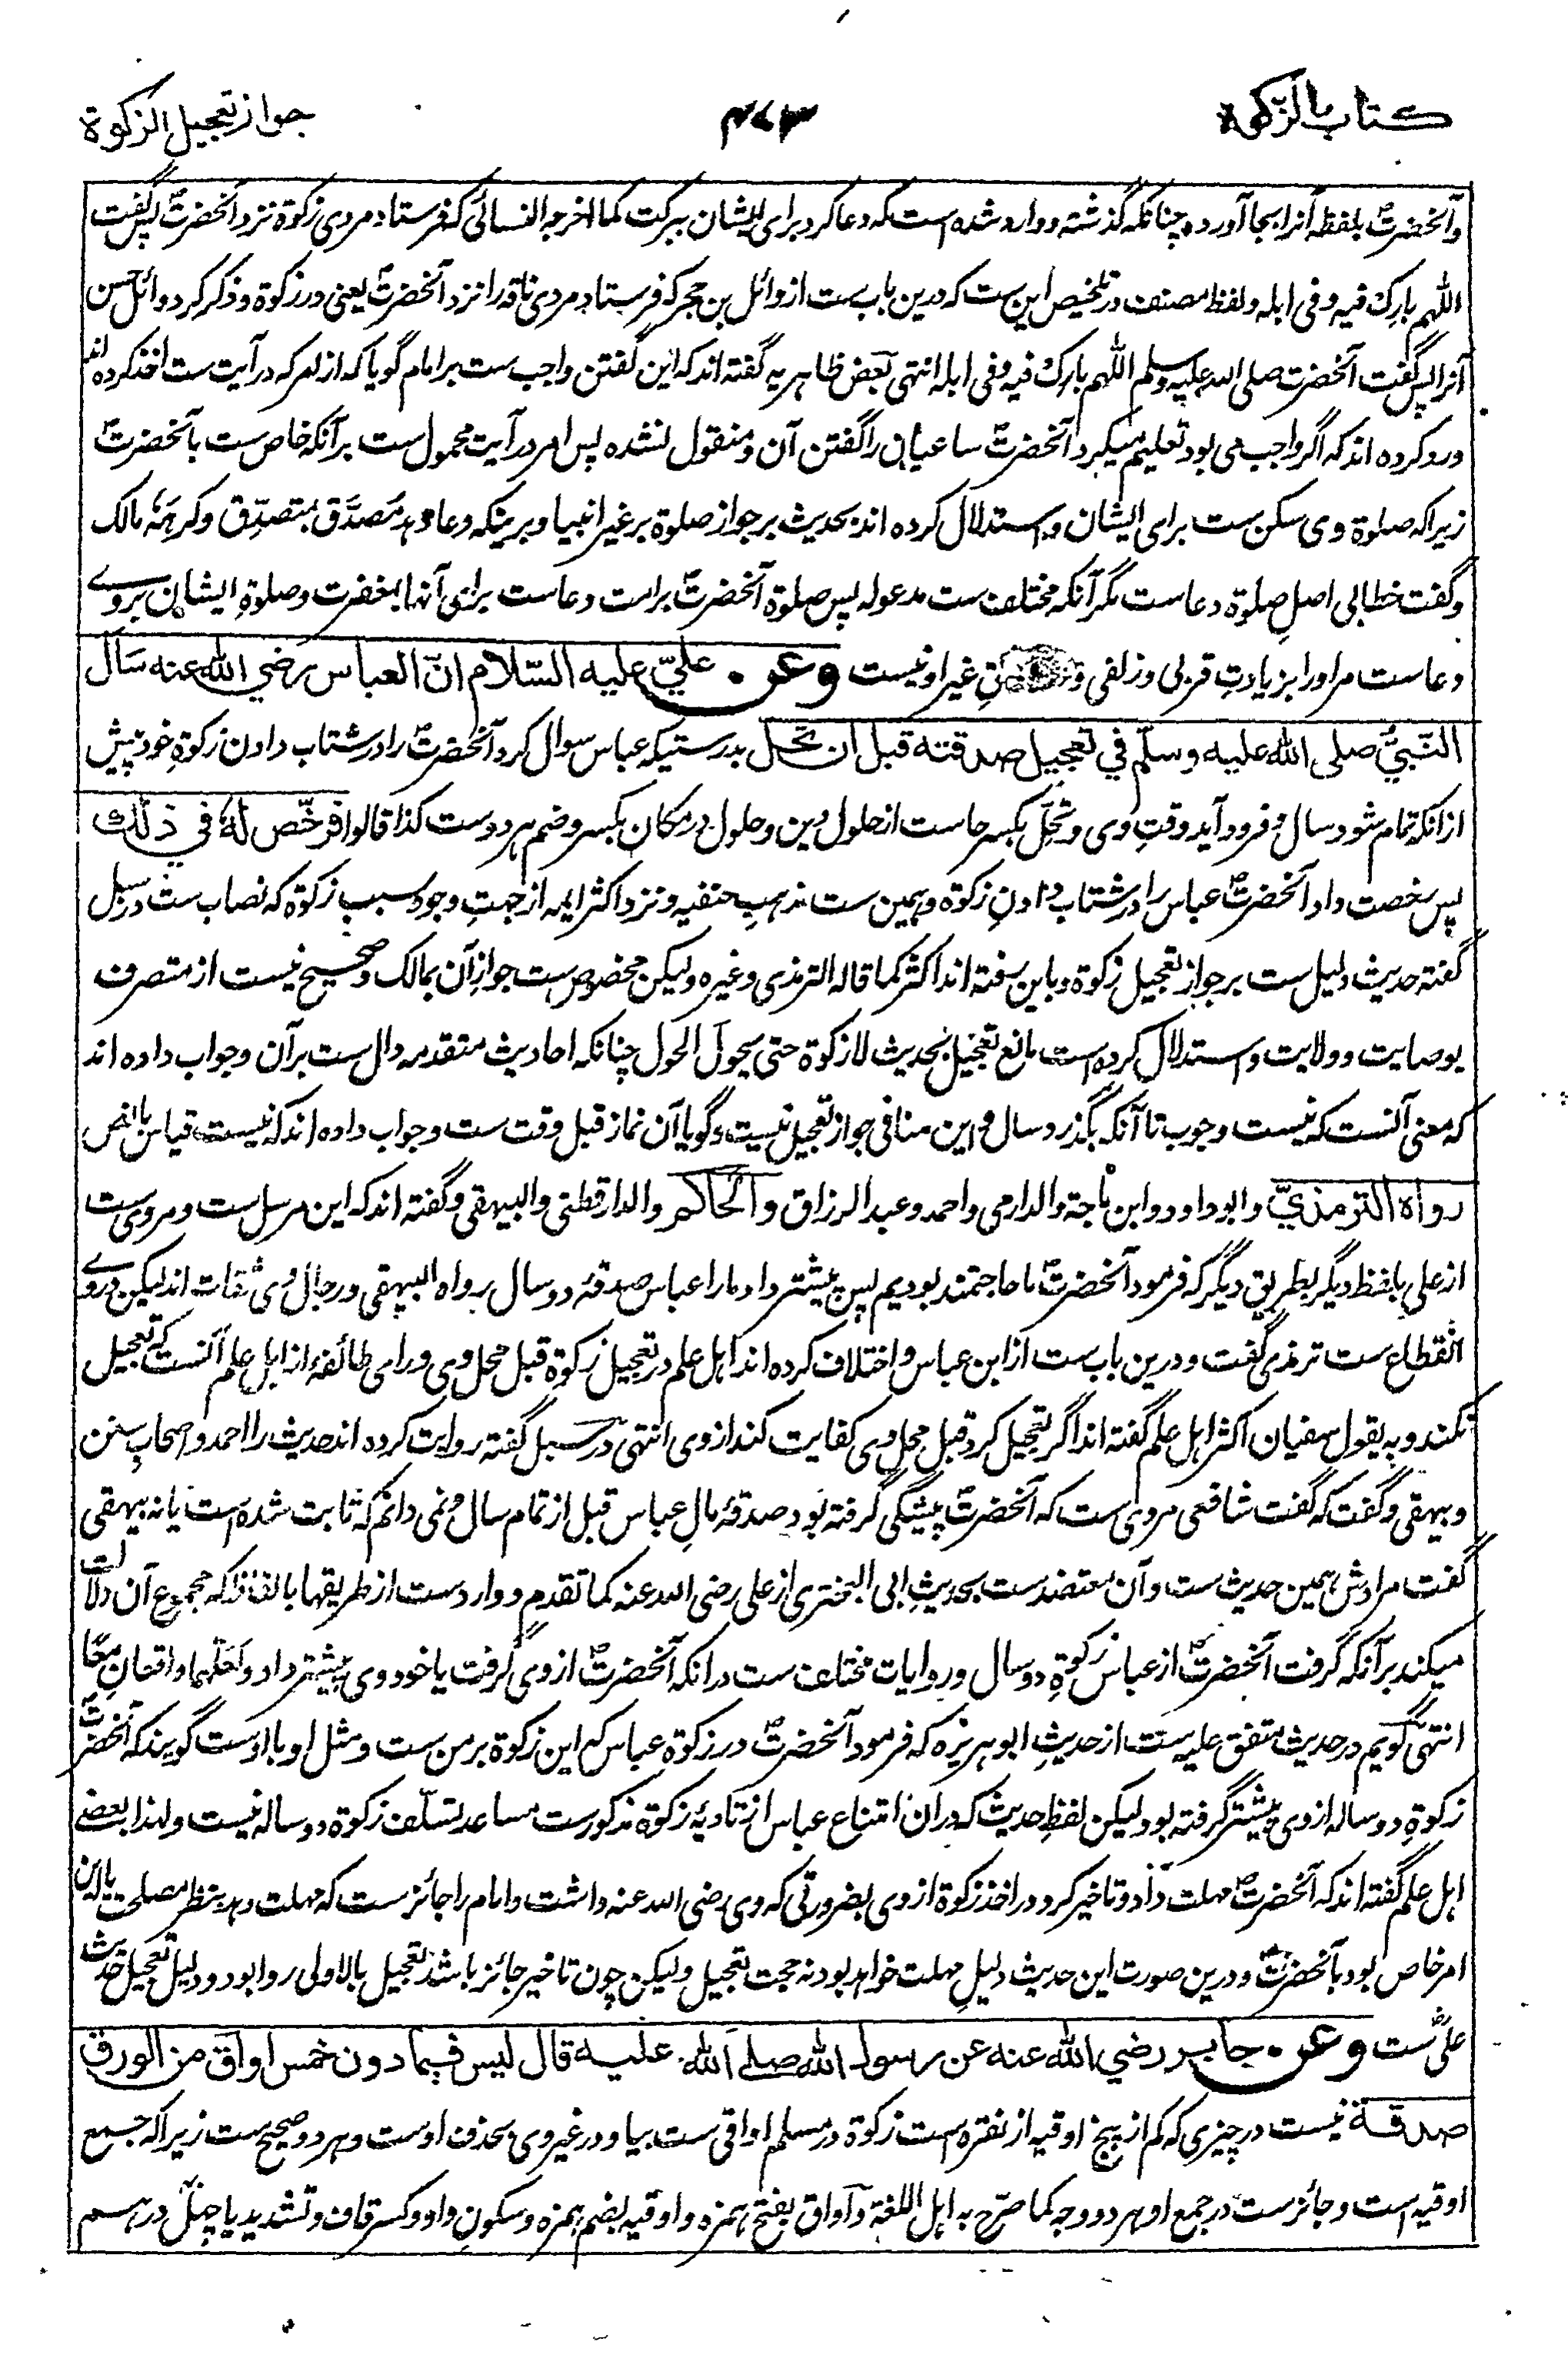 کتاب الزکوة
۴۷۳
جواز تعجیل الزکوة
وآنحضرتؐ بلفظہ آنرا بجا آورد چنانکہ گذشتہ ووارد شدہ است کہ دعا کرد برای ایشان ببرکت کما اخرجہ النسائی کہ فرستاد مردی زکوة نزد آنحضرتؐ پس گفت
اللہم بارک فیہ وفی ابلہ ولفظ مصنف در تلخیص این ست کہ درین باب ست از وائل بن حجر کہ فرستاد مردی ناقہ را نزد آنحضرتؐ یعنی در زکوة وذکر کرد وائل حسن
آنرا پس گفت آنحضرت صلی اللہ علیہ وسلم اللہم بارک فیہ وفی ابلہ انتہی بعض ظاہریہ گفتہ اند کہ این گفتن واجب ست بر امام گویا کہ از امر کہ در آیت ست اخذ کردہ اند
ورد کردہ اند کہ اگر واجب می بود تعلیم میکرد آنحضرتؐ ساعیان را گفتن آن ومنقول نشدہ پس امر در آیت محمول ست بر آنکہ خاص ست بآنحضرتؐ
زیراکہ صلوة وی سکن ست برای ایشان واستدلال کردہ اند بحدیث بر جواز صلوة بر غیر انبیا وبرینکہ دعا دہد مصَدَّق بمتصدِّق وکرہَہٗ مالک
وگفت خطابی اصلِ صلوة دعاست مگر آنکہ مختلف ست مدعولہ پس صلوة آنحضرتؐ بر امت دعاست برای آنہا بمغفرت وصلوةِ ایشان بروے
دعاست مر اورا بزیادتِ قربی وزلفی غیر او نیست وعن علیّ علیہ السّلام انّ العباس رضی اللہ عنہ سَاَل
النّبیَّ صلی اللہ علیہ وسلّم فی تعجیل صدقتہ قبل ان تَحِلّ بدرستیکہ عباس سوال کرد آنحضرتؐ را در شتاب دادن زکوةِ خود پیش
ازانکہ تمام شود سال و فرود آید وقتِ وی وتحِلَّ بکسر حاست از حلول دین وحلول در مکان بکسر وضم ہر دوست کذا قالوا فرخّص لہٗ فی ذٰلک
پس رخصت داد آنحضرتؐ عباس را در شتاب دادنِ زکوة وہمین ست مذہبِ حنفیہ ونزد اکثر ایمہ از جہتِ وجودِ سبب زکوة کہ نصاب ست در سبل
گفتہ حدیث دلیل ست بر جواز تعجیل زکوة وباین رفتہ اند اکثر کما قالہ الترمذی وغیرہ ولیکن مخصوص ست جوازِ آن بمالک وصحیح نیست از متصرف
بوصایت وولایت واستدلال کردہ است مانع تعجیل بحدیث لا زکوة حتی یحول الحول چنانکہ احادیث متقدمہ دال ست بر آن وجواب دادہ اند
کہ معنی آنست کہ نیست وجوب تا آنکہ بگذرد سال واین منافی جواز تعجیل نیست وگویا آن نماز قبل وقت ست وجواب دادہ اند کہ نیست قیاس با نص
رواہ الترمذیّ وابو داود وابن ماجة والدارمی واحمد وعبد الرزاق والحاکم والدارقطنی والبیہقی وگفتہ اند کہ این مرسل ست ومروی ست
از علی بلفظ دیگر بطریق دیگر کہ فرمود آنحضرتؐ ما حاجتمند بودیم پس پیشتر داد مارا عباس صدقۂ دو سال رواہ البیہقی ورجال وی ثقات اند لیکن دروے
انقطاع ست ترمذی گفت ودرین باب ست از ابن عباس واختلاف کردہ اند اہل علم در تعجیل زکوة قبل محل وی ورای طائفۂ از اہل علم آنست کہ تعجیل
نکند وبہ یقول سفیان اکثر اہل علم گفتہ اند اگر تعجیل کرد قبل محلِ وی کفایت کند از وی انتہی در سبل گفتہ روایت کردہ اند حدیث را احمد واصحاب سنن
وبیہقی وگفت کہ گفت شافعی مروی ست کہ آنحضرتؐ پیشگی گرفتہ بود صدقۂ مالِ عباس قبل از تمام سال ونمی دانم کہ ثابت شدہ است یا نہ بیہقی
گفت مرادش ہمین حدیث ست وآن معتضد ست بحدیثِ ابی البختری از علی رضی اللہ عنہ کما تقدم ووارد ست از طریقہا بالفاظ کہ مجموع آن دلالت
میکند بر آنکہ گرفت آنحضرتؐ از عباس زکوةِ دو سال وروایات مختلف ست در آنکہ آنحضرتؐ از وی گرفت یا خود وی پیشتر داد ولعلہما واقعانِ معًا
انتہی گویم در حدیث متفق علیہ ست از حدیثِ ابو ہریرہ کہ فرمود آنحضرتؐ در زکوة عباس کہ این زکوة بر من ست ومثل او با اوست گویند کہ آنحضرتؐ
زکوةِ دو سالہ از وی پیشتر گرفتہ بود لیکن لفظِ حدیث کہ دران امتناع عباس از تادیۂ زکوة مذکور ست مساعد تسلّف زکوة دو سالہ نیست ولہذا بعضے
اہل علم گفتہ اند کہ آنحضرتؐ مہلت داد وتاخیر کرد در اخذ زکوة از وی بضرورتی کہ وی رضی اللہ عنہ داشت وامام را جائز ست کہ مہلت دہد بنظر مصلحت یا این
امر خاص بود بآنحضرتؐ ودرین صورت این حدیث دلیلِ مہلت خواہد بود نہ حجت تعجیل ولیکن چون تاخیر جائز باشد تعجیل بالاولی روا بود ودلیل تعجیل حدیث
علیؓ ست وعن جابر رضی اللہ عنہ عن رسول اللہ صلی اللہ علیہ قال لیس فیما دون خمس اواق من الورق
صدقة نیست در چیزی کہ کم از پنج اوقیہ از نقرہ است زکوة در مسلم اواقی ست بیا ودر غیر وی بحذف اوست وہر دو صحیح ست زیراکہ جمع
اوقیہ است وجائز ست در جمع او ہر دو وجہ کما صرّح بہ اہل اللغة وآواق بفتح ہمزہ واوقیہ بضم ہمزہ وسکونِ واو وکسر قاف وتشدید یا چہل درہم